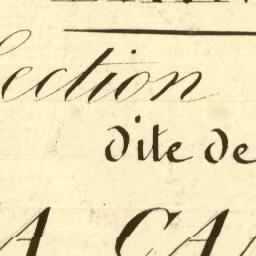 Section
dite de
A CA